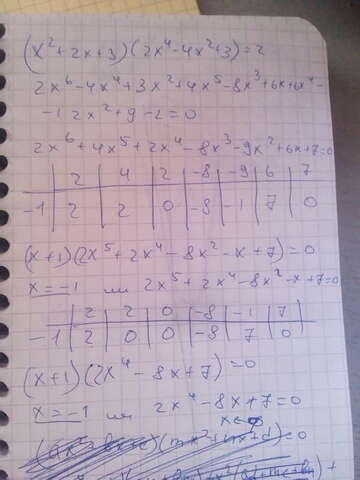 (x²+2x+3)(2x⁴-4x²+3)=2
2x⁶-4x⁴+3x²+4x⁵-8x³+6x+6x⁴-
-12x²+9-2=0
2x⁶+4x⁵+2x⁴-8x³-9x²+6x+7=0
2 | 4 | 2 | -8 | -9 | 6 | 7
-1 | 2 | 2 | 0 | -8 | -1 | 7 | 0
(x+1)(2x⁵+2x⁴-8x²-x+7)=0
x=-1 или 2x⁵+2x⁴-8x²-x+7=0
2 | 2 | 0 | -8 | -1 | 7
-1 | 2 | 0 | 0 | -8 | 7 | 0
(x+1)(2x⁴-8x+7)=0
x=-1 или 2x⁴-8x+7=0